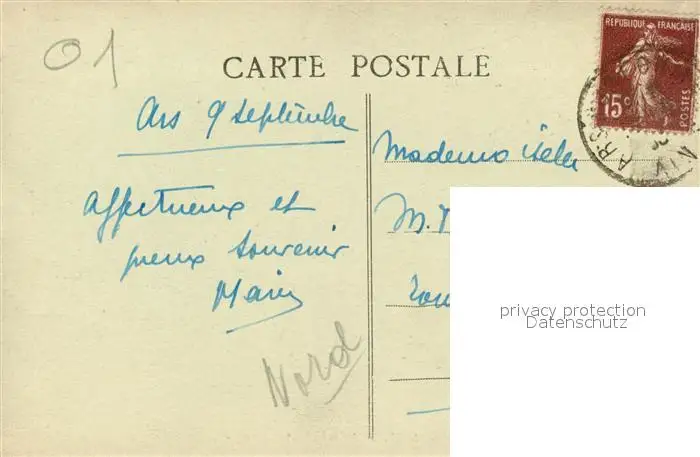 01
CARTE POSTALE
REPUBLIQUE FRANÇAISE
15c
POSTES
Ars 9 septembre
Affectueux et
pieux souvenir
Nord
Mademoiselle
M.
privacy protection
Datenschutz